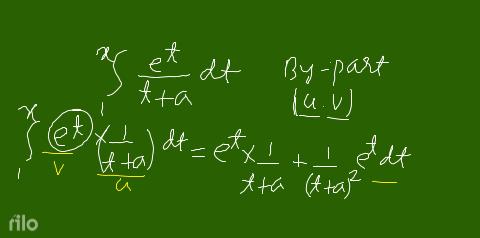 ∫₁ˣ e^t/(t+a) dt By-part
(u.v)
∫₁ˣ e^t × (1/(t+a)) dt = e^t × 1/(t+a) + 1/(t+a)² e^t dt
v u
rilo